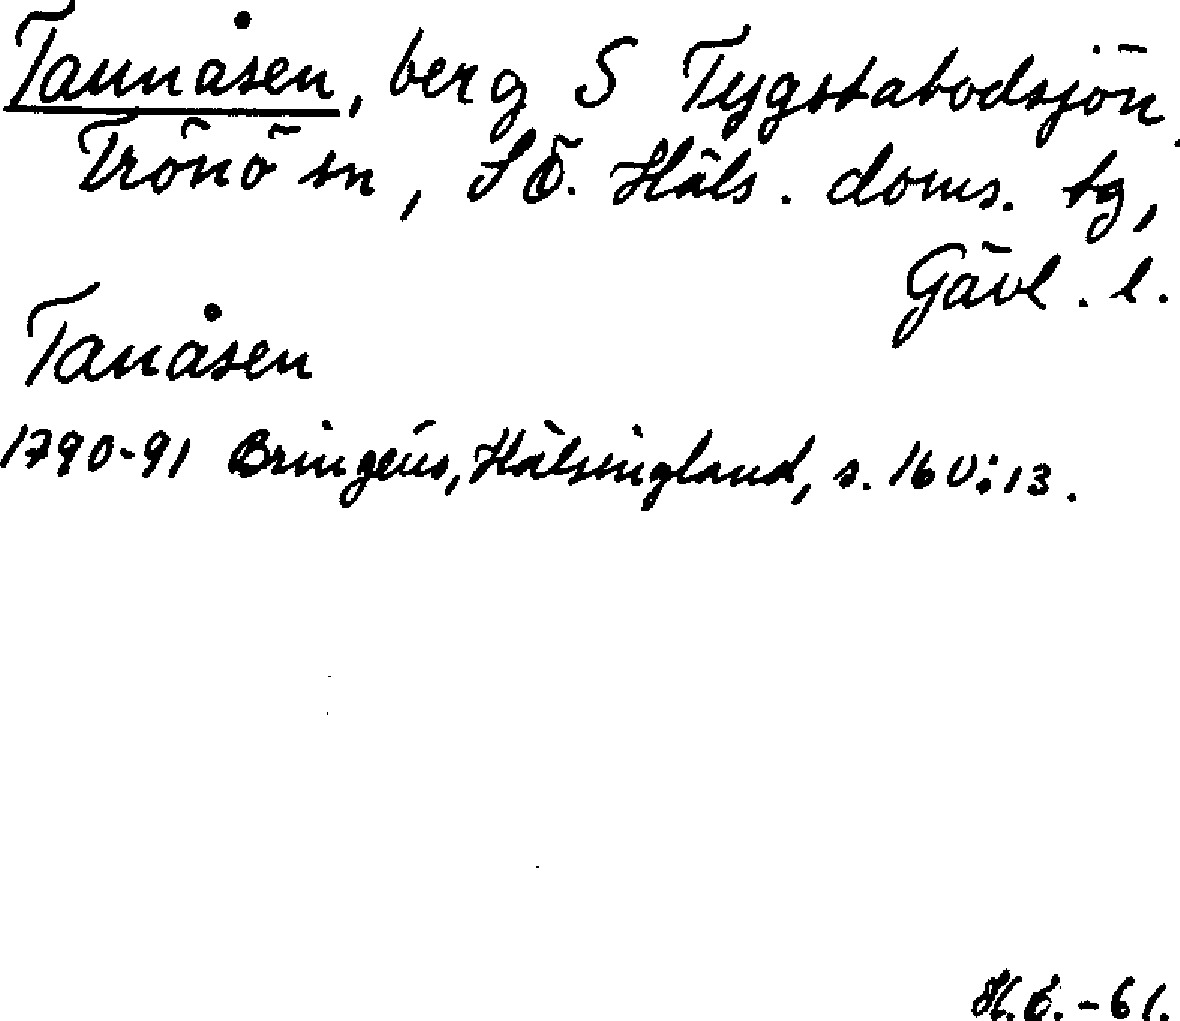 Tannåsen, berg S Tygstabodsjön,
Trönö sn, SÖ. Häls. doms. tg,
Gävl. l.
Tanåsen
1790-91 Bringéus, Hälsingland, s. 160:13.
-61.